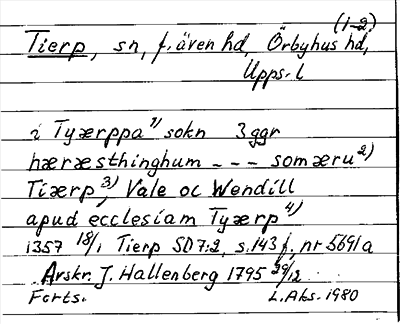 (1-2)
Tierp, sn, f. även hd, Örbyhus hd,
Upps. l
i Tyærppa 1) sokn 3 ggr
hæræsthinghum --- somæru 2)
Tiærp 3), Vale oc Wendill
apud ecclesiam Tyærp 4)
1357 18/1 Tierp SD 7:2, s. 143 f, nr 5691a
Avskr. J. Hallenberg 1795 29/12
Forts. L. Aks. 1980